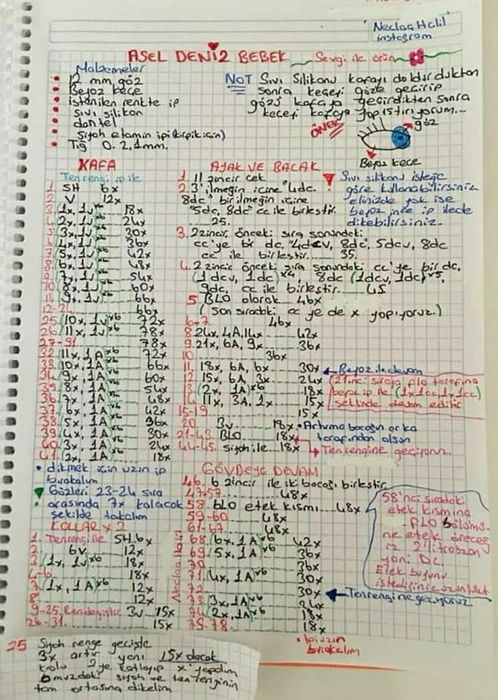 Neclae Halil
instagram
ASEL DENİZ BEBEK
Sevgi ile örün
Malzemeler
12 mm göz
Beyaz kece
istenilen renkte ip
sıvı silikon
dantel
Siyah etamin ipi (kirpik için)
Tığ 0. 2,1mm.
NOT Sıvı Silikonu kafayı doldurduktan
sonra keçeyi göze geçirip
gözü kafaya geçirdikten sonra
keçeyi kafaya yapıştırıyorum...
ÖRNEK
göz
Beyaz kece
Sıvı silikonu isteğe
göre kullanabilirsiniz
elinizde yok ise
beyaz ince ip ilede
dikebilirsiniz.
KAFA
Ten rengi ip ile
1. SH 6x
2. V 12x
3. 1x, 1v x6 18x
4. 2x, 1v x6 24x
5. 3x, 1v x6 30x
6. 4x, 1v x6 36x
7. 5x, 1v x6 42x
8. 6x, 1v x6 48x
9. 7x, 1v x6 54x
10. 8x, 1v x6 60x
11. 9x, 1v x6 66x
12-24 66x
25. 10x, 1v x6 72x
26. 11x, 1v x6 78x
27-31 78x
32. 11x, 1A x6 72x
33. 10x, 1A x6 66x
34. 9x, 1A x6 60x
35. 8x, 1A x6 54x
36. 7x, 1A x6 48x
37. 6x, 1A x6 42x
38. 5x, 1A x6 36x
39. 4x, 1A x6 30x
40. 3x, 1A x6 24x
41. 2x, 1A x6 18x
dikmek için uzun ip
bırakalım
Gözleri 23-24 sıra
arasında 7x kalacak
şekilde takalım
KOLLAR x 2
1. Ten rengi ile SH 6x
2. 6V 12x
3. 1x, 1v x6 18x
4-6 18x
7. 1x, 1A x6 12x
8. 12x
9-25. 3v 15x
26-31 15x
AYAK VE BACAK
1. 11 zincir çek
2. 3' ilmeğin icine 4dc.
8dc 8' bir ilmeğin icine
5dc, 8dc cc ile birlestir.
25.
3. 2 zincir, önceki sıra sonundaki
cc'ye bir dc, 4dcv, 8dc, 5dcv, 8dc
cc ile birlestir. 35.
4. 2 zincir önceki sıra sonundaki cc'ye bir dc,
(1dcv, 1dc) x4 8dc (1dcv, 1dc) x5,
9dc, cc ile birlestir. 45
5. BLO olarak 46x
( son sıradaki cc ye de x yapıyoruz.)
6-7 46x
8. 24x, 4A, 14x 42x
9. 21x, 6A, 9x 36x
10. 36x
11. 18x, 6A, 6x 30x Beyaz ile devam
12. 15x, 6A, 3x 24x
13. 2x, 1A x6 18x
14. 11x, 3A, 1x 15x
15-19 15x
20. 3v 18x Artırma bacağın arka
tarafından olsun
21-43 BLO 18x
44-45. Siyah ile 18x Ten rengine geçiyoruz
GÖVDEYE DEVAM
46. 6 zincir ile iki bacağı birlestir.
47-57 48x
58. BLO etek kısmı 48x
59-60 48x
61-67 48x
68. 6x, 1A x6 42x
69. 5x, 1A x6 36x
70. 36x
71. 4x, 1A x6 30x
72. 30x Ten rengine geçiyoruz
73. 3x, 1A x6 24x
74. 2x, 1A x6 18x
75-78. 18x
ip uzun
bırakalım
58'inci sıradaki
etek kısmına
FLO bölümü-
ne etek örecegiz
2'li trabzan
yani DC
Etek boyunu
25 Siyah renge geçişte
3x artır yani 15x olacak
kolu 2'ye katlayıp x yapalım
omuzdaki siyah ve ten renginin
tam ortasına dikelim